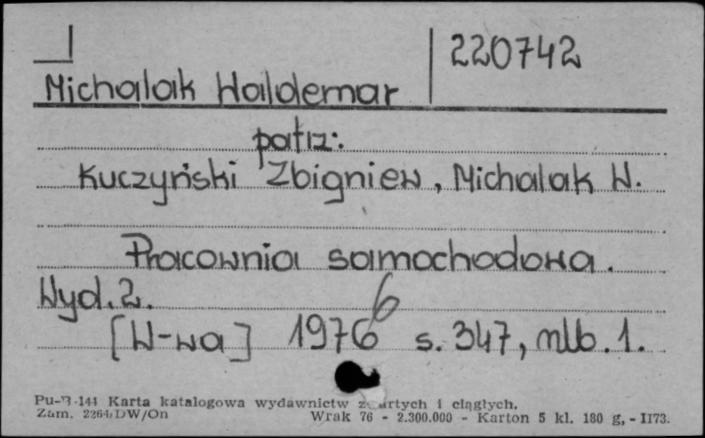 220742
Michalak Waldemar
patrz:
Kuczyński Zbigniew, Michalak W.
Pracownia samochodowa.
Wyd. 2.
6
[W-wa] 1976 s. 347, nlb. 1.
Pu-B-141 Karta katalogowa wydawnictw zwartych i ciągłych.
Zam. 2264/DW/On Wrak 76 - 2.300.000 - Karton 5 kl. 180 g, - 1173.